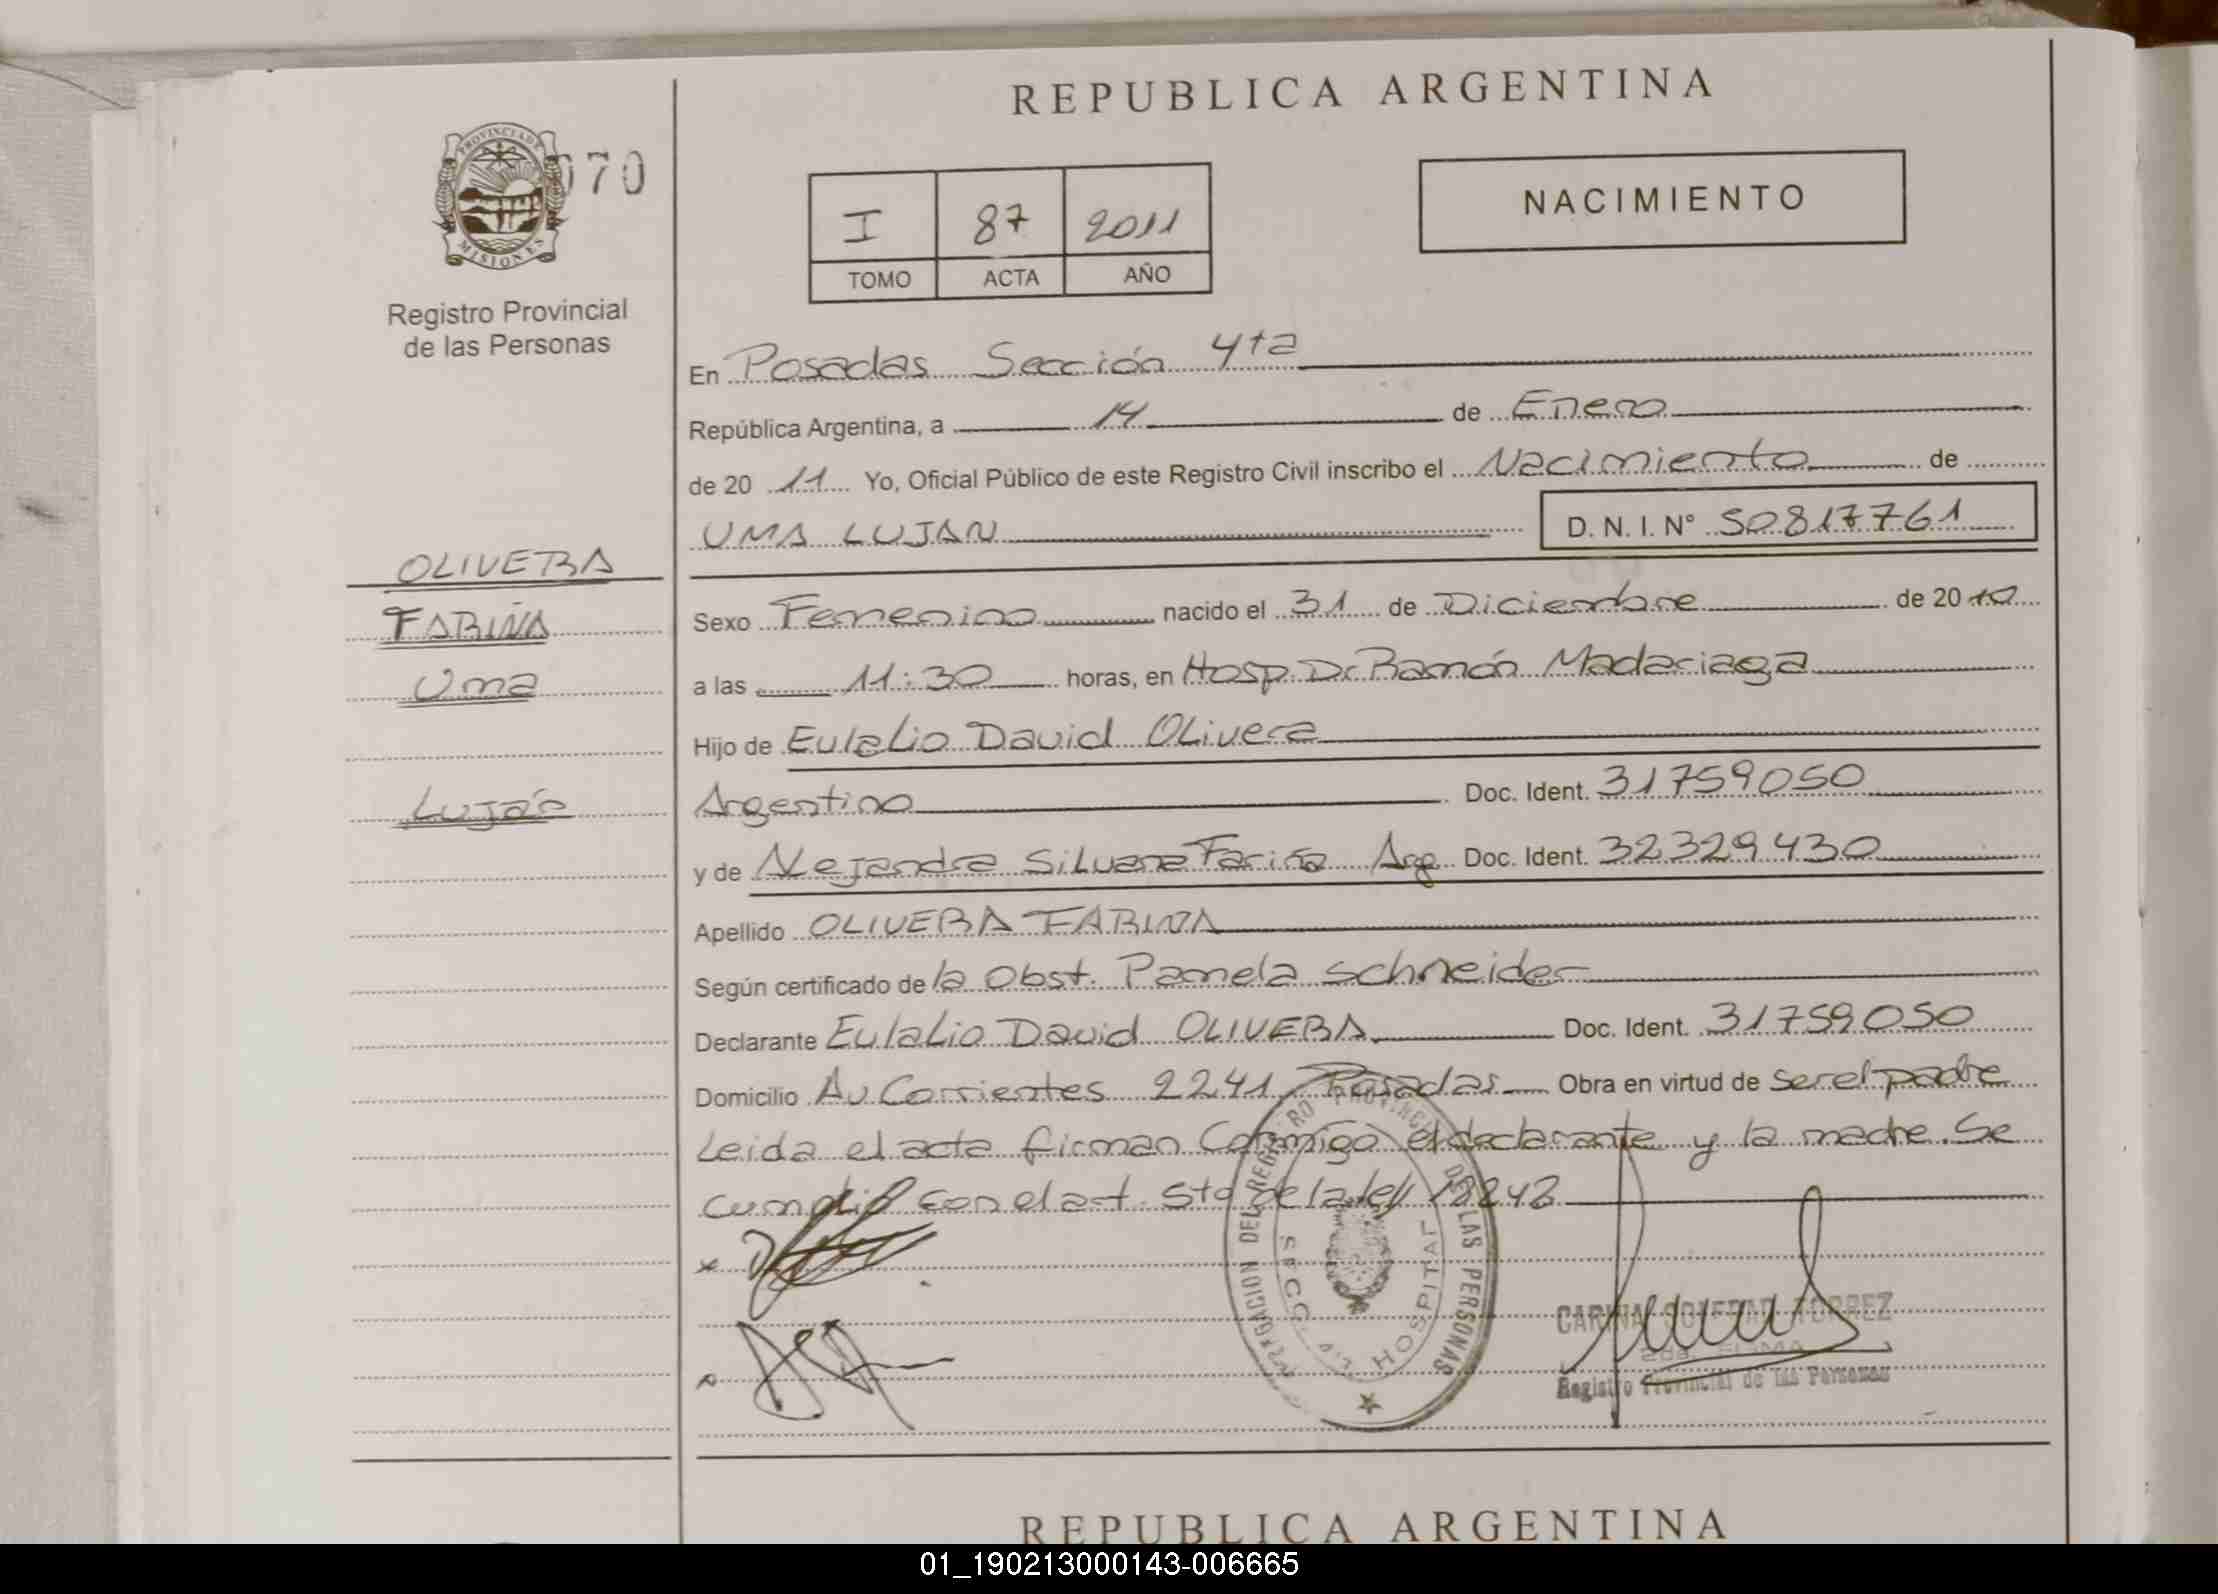 REPUBLICA ARGENTINA
PROVINCIA DE
MISIONES
070
Registro Provincial
de las Personas
I 87 2011
TOMO ACTA AÑO
NACIMIENTO
En Posadas Sección 4ta
República Argentina, a 14 de Enero
de 20 11 Yo, Oficial Público de este Registro Civil inscribo el Nacimiento de
UMA LUJAN D. N. I. N° 50817761
OLIVERA
FARIÑA
Uma
Luján
Sexo Femenino nacido el 31 de Diciembre de 2010
a las 11:30 horas, en Hosp. Dr Ramón Madariaga
Hijo de Eulalio David Olivera
Argentino Doc. Ident. 31759050
y de Alejandra Silvana Fariña Arg Doc. Ident. 32329430
Apellido OLIVERA FARIÑA
Según certificado de la Obst. Pamela Schneider
Declarante Eulalio David OLIVERA Doc. Ident. 31759050
Domicilio Av Corrientes 2241 Posadas Obra en virtud de ser el padre
Leida el acta firman Conmigo el declarante y la madre. Se
cumplió con el art. 5to de la ley 18248
DEL REGISTRO PROVINCIAL DE LAS PERSONAS
SECC. 4ta HOSPITAL
CARINA SOLEDAD TORREZ
2da. FIRMA
Registro Provincial de las Personas
REPUBLICA ARGENTINA
01_190213000143-006665